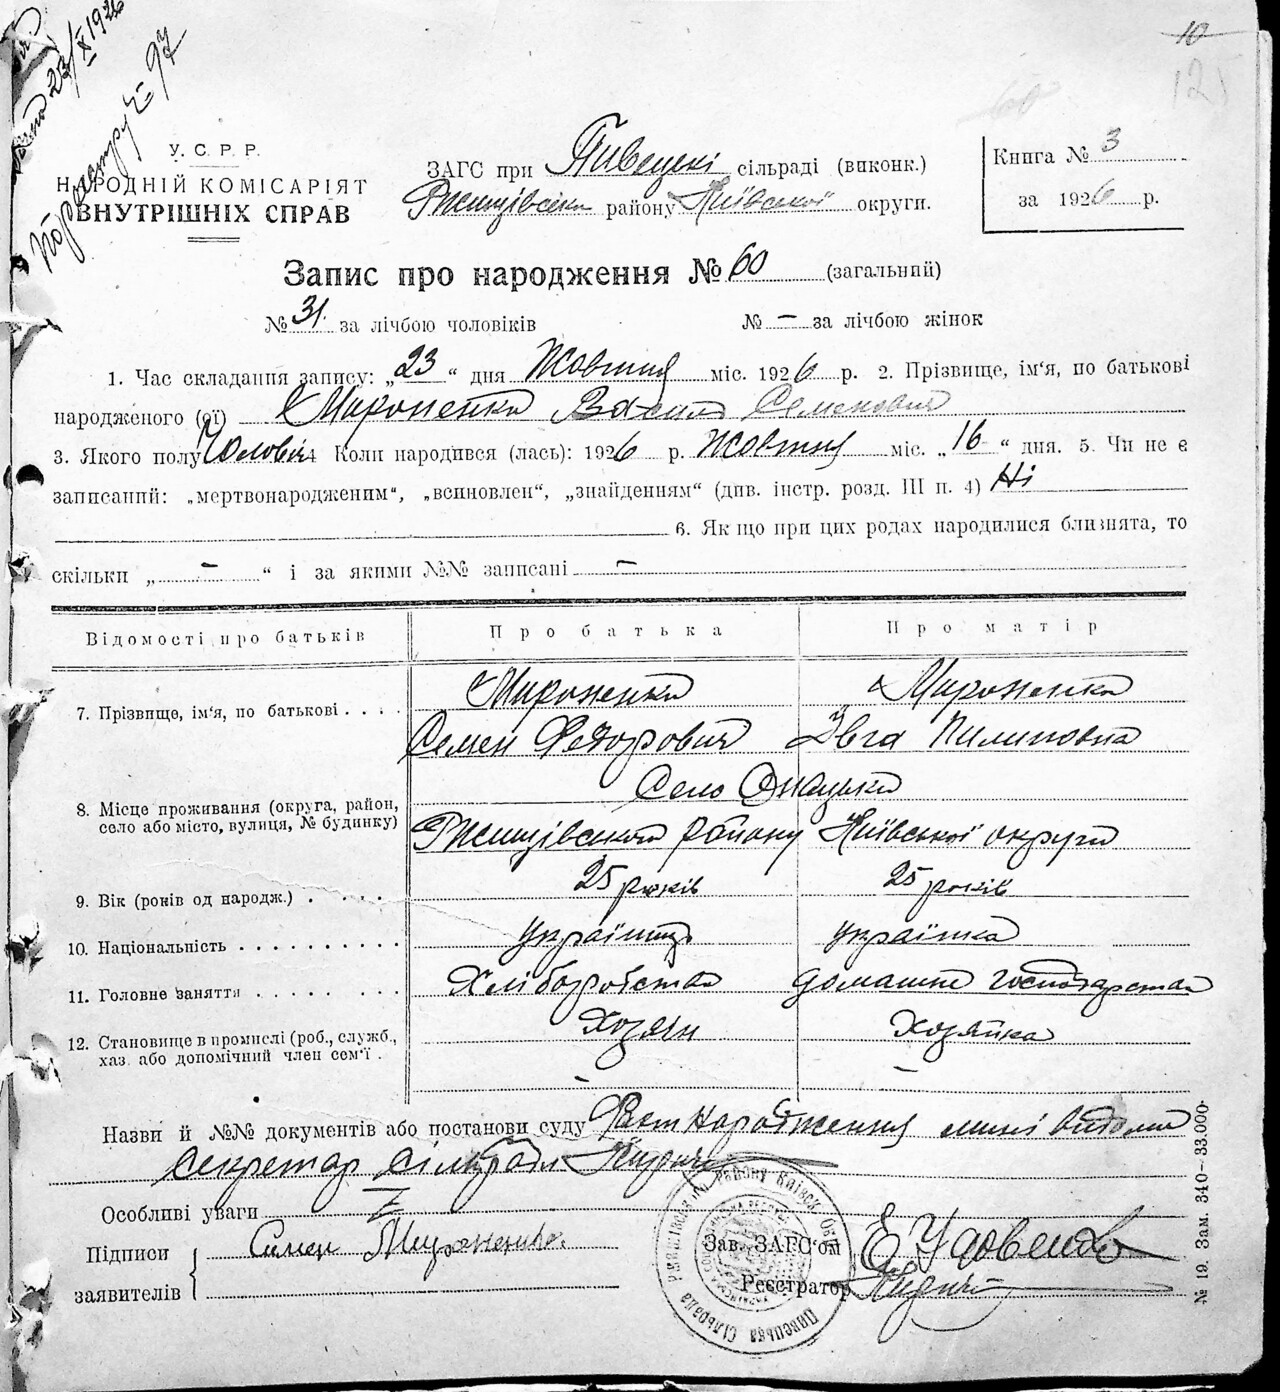 23/X 1926
10
125
60
У. С. Р. Р.
НАРОДНІЙ КОМІСАРІЯТ
ВНУТРІШНІХ СПРАВ
ЗАГС при Пивецькі сільраді (виконк.)
Ржищівськ району Київської округи.
Книга № 3
за 1926 р.
Запис про народження № 60 (загальний)
№ 31. за лічбою чоловіків № — за лічбою жінок
1. Час складання запису: „23“ дня Жовтня міс. 1926 р. 2. Прізвище, ім‘я, по батькові
народженого (ої) Мироненко Василь Семенович
3. Якого полу Чоловіч 4 Коли народився (лась): 1926 р. Жовтня міс. „16“ дня. 5. Чи не є
записаний: „мертвонародженим“, „всиновлен“, „знайденням“ (див. інстр. розд. III п. 4) Ні
6. Якщо при цих родах народилися близнята, то
скільки „ — “ і за якими №№ записані —
Відомості про батьків Про батька Про матір
7. Прізвище, ім‘я, по батькові . . . . Мироненко Мироненко
Семен Федорович Івга Пилиповна
8. Місце проживання (округа, район, село або місто, вулиця, № будинку) Село Онацьки
Ржищівського району Київської округи
9. Вік (років од народж.) . . . . 25 років 25 років
10. Національність . . . . . . . . . . українець українка
11. Головне заняття . . . . . . . . Хліборобство домашнє господарство
12. Становище в промислі (роб., служб., Хозяїн Хозяйка
хаз. або допомічний член сем‘ї . — —
Назви й №№ документів або постанови суду Факт народження мині відомий
Секретар Сільради
Особливі уваги
Підписи Симен Мироненко.
заявителів
Зав. ЗАГС‘ом Е Удовенко
Реєстратор
Пивецька Сільрада Ржищівського району Київск. Окр.
№ 19. Зам. 340—33.000.